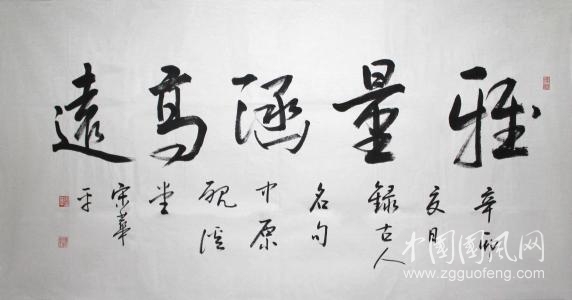 雅量涵高遠
辛卯
夏月
錄古人
名句
中原
溪
堂
宋華
平
中國國風网
www.zgguofeng.com